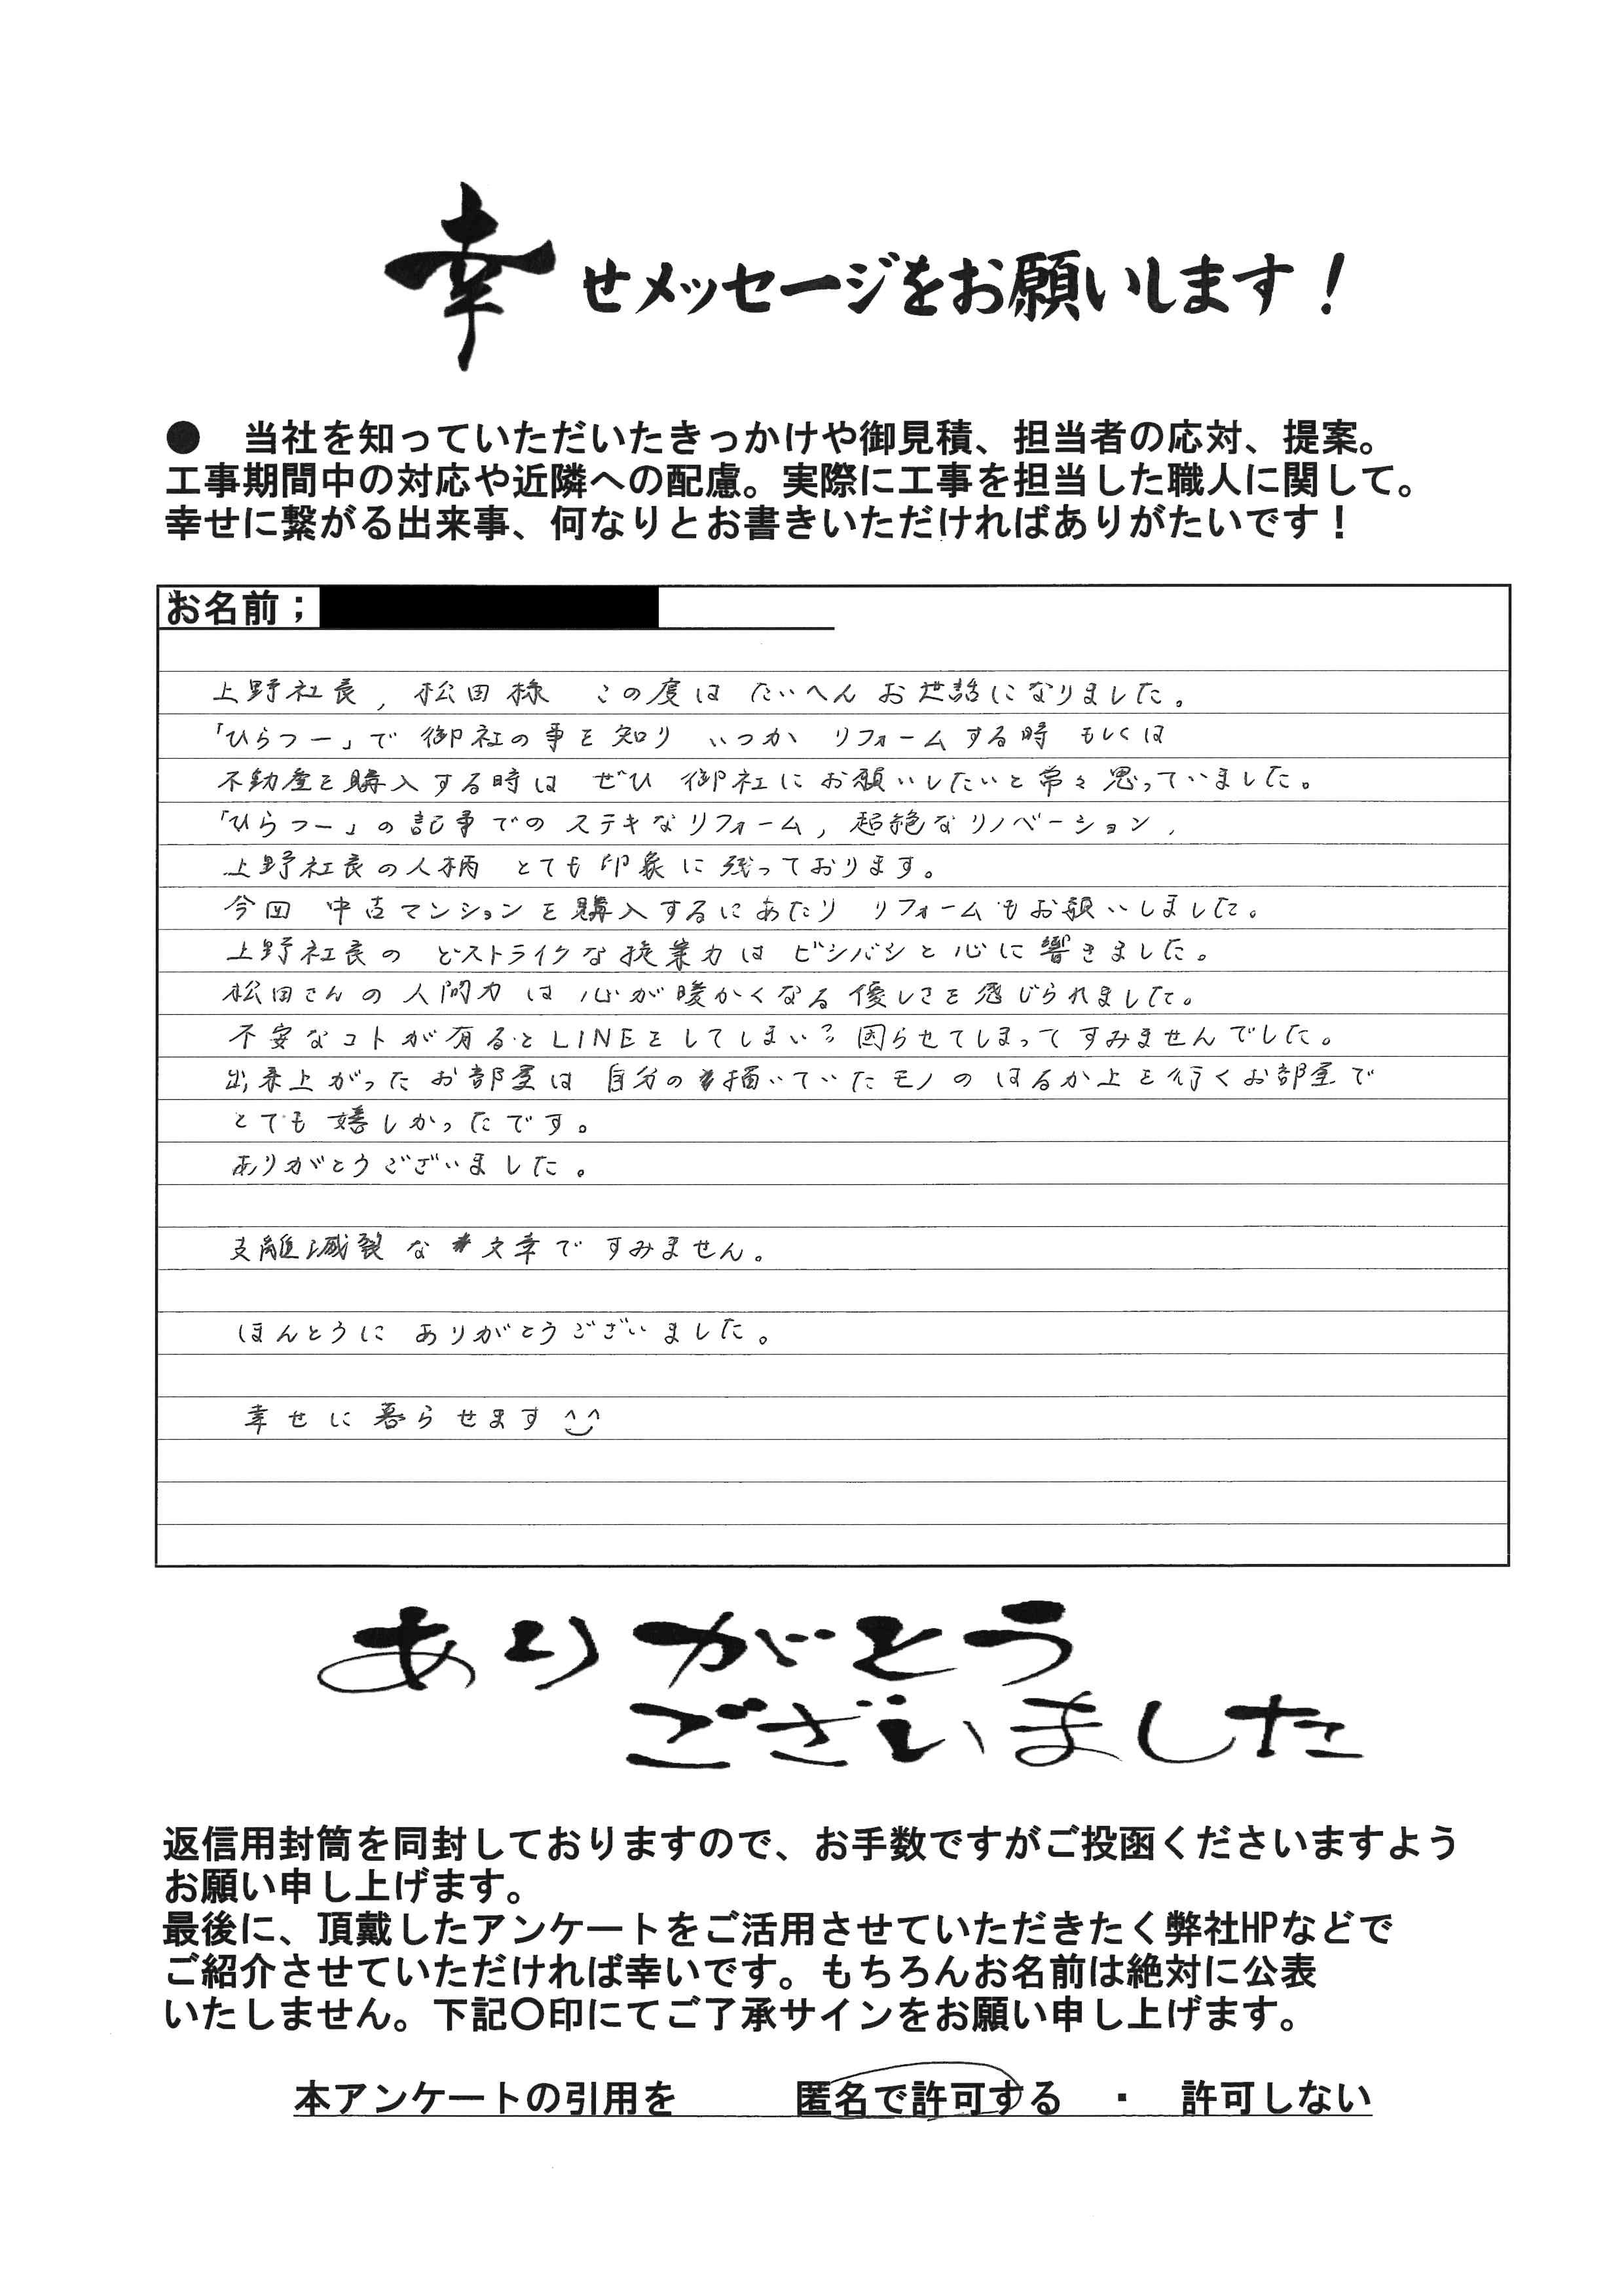 幸せメッセージをお願いします！
●　当社を知っていただいたきっかけや御見積、担当者の応対、提案。
工事期間中の対応や近隣への配慮。実際に工事を担当した職人に関して。
幸せに繋がる出来事、何なりとお書きいただければありがたいです！
お名前；
上野社長，松田様　この度は　たいへん　お世話になりました。
「ひらつー」で　御社の事を知り　いつか　リフォームする時　もしくは
不動産を購入する時は　ぜひ　御社にお願いしたいと常々思っていました。
「ひらつー」の記事での　ステキなリフォーム，超絶なリノベーション，
上野社長の人柄　とても　印象に　残っております。
今回　中古マンションを購入するにあたり　リフォームもお願いしました。
上野社長の　どストライクな提案力は　ビシバシと　心に　響きました。
松田さんの　人間力は　心が暖かくなる　優しさを感じられました。
不安なコトが有るとLINEをしてしまい　困らせてしまって　すみませんでした。
出来上がったお部屋は　自分の描いていたモノの　はるか上を行くお部屋で
とても嬉しかったです。
ありがとうございました。
支離滅裂な文章で　すみません。
ほんとうに　ありがとうございました。
幸せに暮らせます^^
ありがとう
ございました
返信用封筒を同封しておりますので、お手数ですがご投函くださいますよう
お願い申し上げます。
最後に、頂戴したアンケートをご活用させていただきたく弊社HPなどで
ご紹介させていただければ幸いです。もちろんお名前は絶対に公表
いたしません。下記〇印にてご了承サインをお願い申し上げます。
本アンケートの引用を　　匿名で許可する　・　許可しない